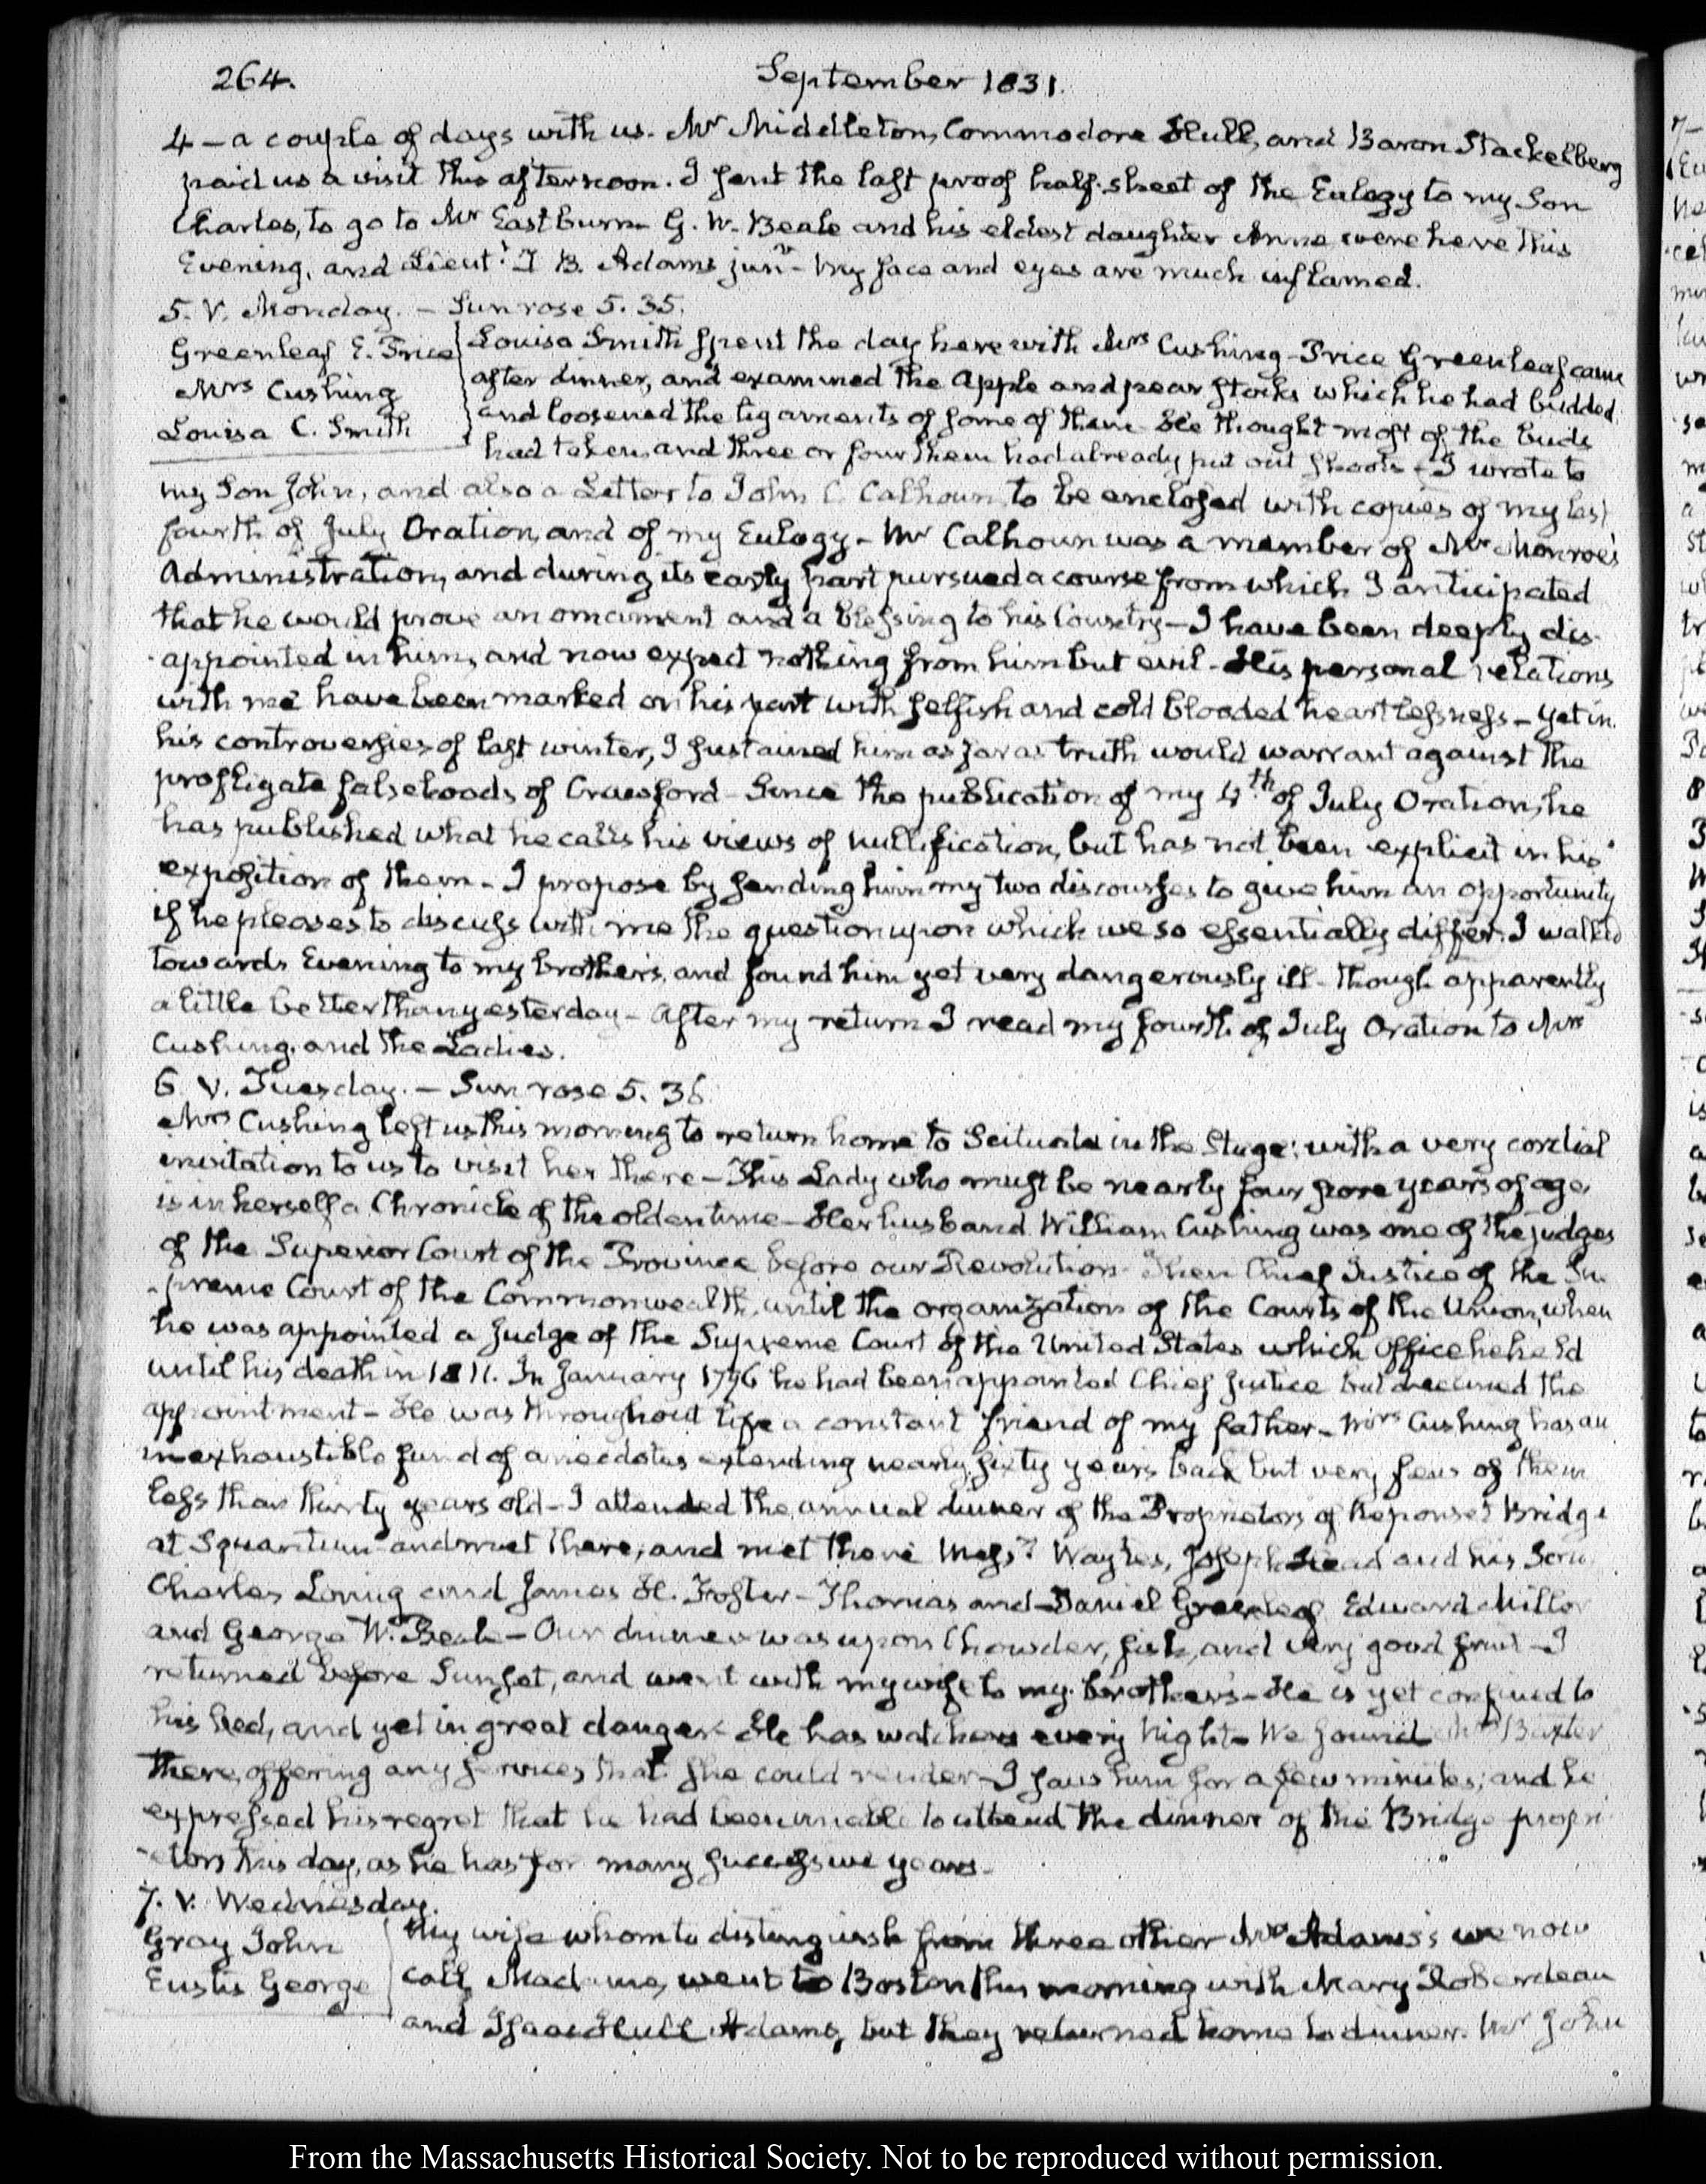 264.
September 1831.
4 – a couple of days with us. Mr Middleton, Commodore Hull, and Baron Stackelberg
paid us a visit this afternoon. I sent the last proof half-sheet of the Eulogy to my Son
Charles, to go to Mr Eastburn – G. W. Beale and his eldest daughter Anne were here this
Evening, and Lieutt. T B. Adams junr – My face and eyes are much inflamed.
5. V. Monday. – Sun rose 5. 35.
Greenleaf E. Price
Mrs Cushing
Louisa C. Smith
Louisa Smith spent the day here with Mrs Cushing – Price Greenleaf came
after dinner, and examined the Apple and pear stocks which he had budded
and loosened the ligaments of some of them – He thought most of the buds
had taken, and three or four them had already put out shoots – I wrote to
my Son John, and also a Letter to John C. Calhoun, to be enclosed with copies of my last
fourth of July Oration, and of my Eulogy – Mr Calhoun was a member of Mr Monroe's
Administration, and during its early part pursued a course from which I anticipated
that he would prove an ornament and a blessing to his Country – I have been deeply dis-
-appointed in him, and now expect nothing from him but evil – His personal relations
with me have been marked on his part with selfish and cold blooded heartlessness – yet in
his controversies of last winter, I sustained him as far as truth would warrant against the
profligate falsehoods of Crawford – Since the publication of my 4th of July Oration, he
has published what he calls his views of nullification, but has not been explicit in his
exposition of them – I propose by sending him my two discourses to give him an opportunity
if he pleases to discuss with me the question upon which we so essentially differ. I walked
towards Evening to my brother's, and found him yet very dangerously ill – though apparently
a little better than yesterday – After my return I read my fourth of July Oration to Mrs
Cushing, and the Ladies.
6 V. Tuesday. – Sun rose 5. 36
Mrs Cushing left us this morning to return home to Scituate in the Stage; with a very cordial
invitation to us to visit her there – This Lady who must be nearly four score years of age,
is in herself a Chronicle of the olden time – Her husband William Cushing was one of the judges
of the Superior Court of the Province before our Revolution – Then Chief Justice of the Su-
-preme Court of the Commonwealth, until the organization of the Courts of the Union, when
he was appointed a Judge of the Supreme Court of the United States which Office he held
until his death in 1811. In January 1796 he had been appointed Chief Justice but declined the
appointment – He was throughout life a constant friend of my father – Mrs Cushing has an
inexhaustible fund of anecdotes extending nearly sixty years back but very few of them
less than thirty years old – I attended the annual dinner of the Proprietors of Neponset Bridge
at Squantum and met there, and met there Messrs Joseph Head and his Son
Charles Loring and James H. Foster – Thomas and Daniel Greenleaf Edward Miller
and George W. Beale – Our dinner was upon Chowder, fish, and very good fruit – I
returned before Sunset, and went with my wife to my brother's – He is yet confined to
his bed, and yet in great danger – He has watchers every night – We found Mrs Baxter
there, offering any services that she could render – I saw him for a few minutes; and he
expressed his regret that he had been unable to attend the dinner of the Bridge propri-
-etors this day, as he has for many successive years –
7. V. Wednesday.
Gray John
Eustis George
My wife whom to distinguish from three other Mrs Adams's we now
call, Madame, went to Boston this morning with Mary Roberdeau
and Isaac Hull Adams, but they returned home to dinner. Mr John
From the Massachusetts Historical Society. Not to be reproduced without permission.